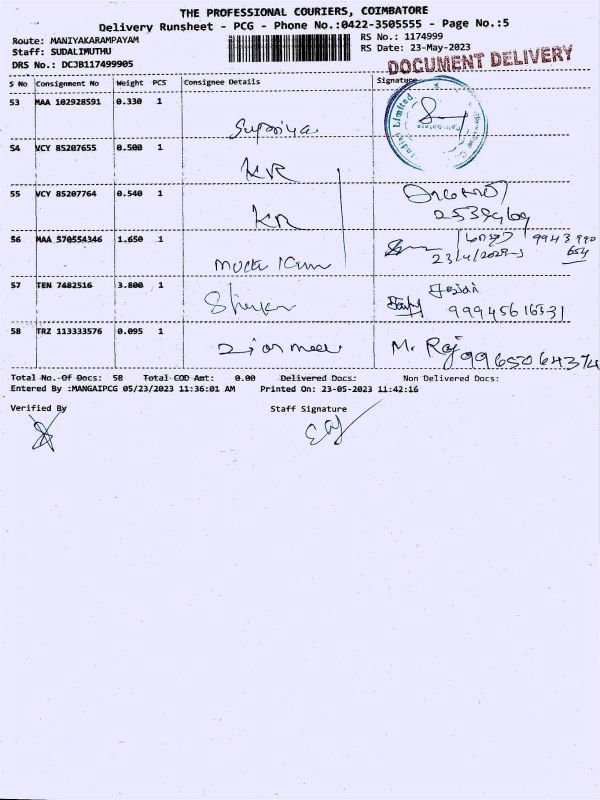 THE PROFESSIONAL COURIERS, COIMBATORE
Delivery Runsheet - PCG - Phone No.:0422-3505555 - Page No.:5
Route: MANIYAKARAMPAYAM
RS No.: 1174999
Staff: SUDALIMUTHU
RS Date: 23-May-2023
DRS No.: DCJB117499905
DOCUMENT DELIVERY
S No Consignment No Weight PCS Consignee Details Signature
53 MAA 102928591 0.330 1
Supriya
Limited
54 VCY 85207655 0.500 1
KR
55 VCY 85207764 0.540 1
KR
56 MAA 570554346 1.650 1
9943990
654
57 TEN 7482516 3.800 1
99945616531
58 TRZ 113333576 0.095 1
M. Raj 9965064374
Total No.-Of Docs: 58 Total COD Amt: 0.00 Delivered Docs: Non Delivered Docs:
Entered By :MANGAIPCG 05/23/2023 11:36:01 AM Printed On: 23-05-2023 11:42:16
Verified By Staff Signature